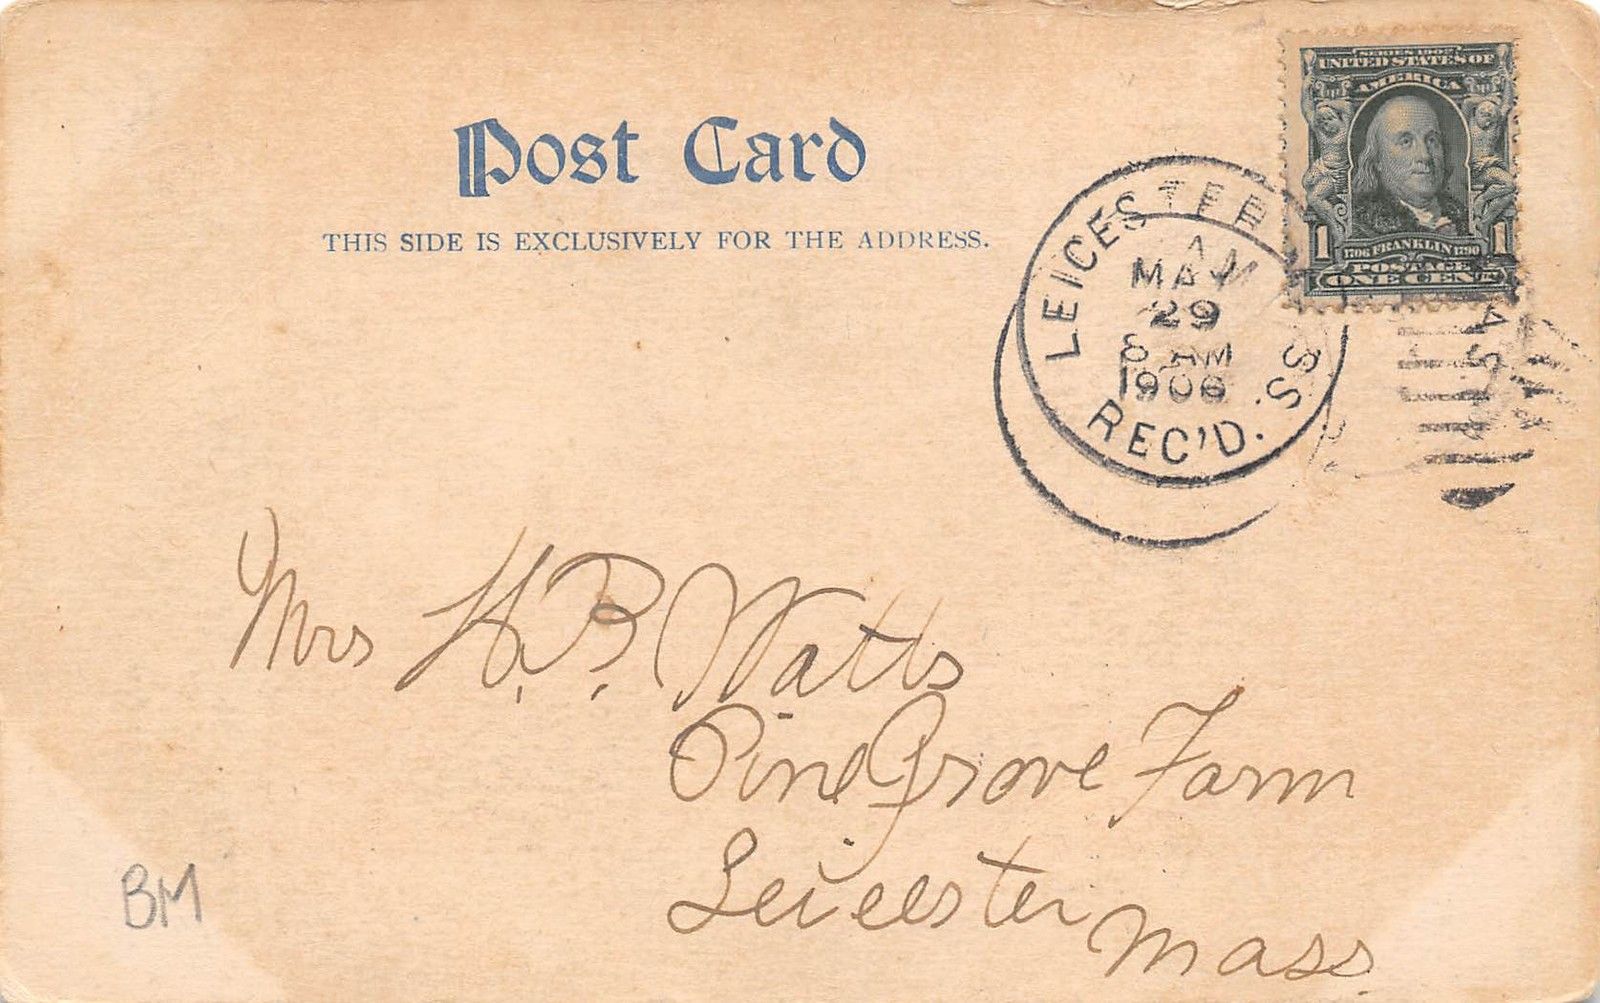 SERIES 1902
UNITED STATES OF
AMERICA
1 1706 FRANKLIN 1790 1
POSTAGE
ONE CENT
Post Card
THIS SIDE IS EXCLUSIVELY FOR THE ADDRESS.
LEICESTER
MASS.
MAY
29
8 AM
1906
REC'D.
Mrs H. B. Watts
Pine Grove Farm
Leicester
Mass
BM